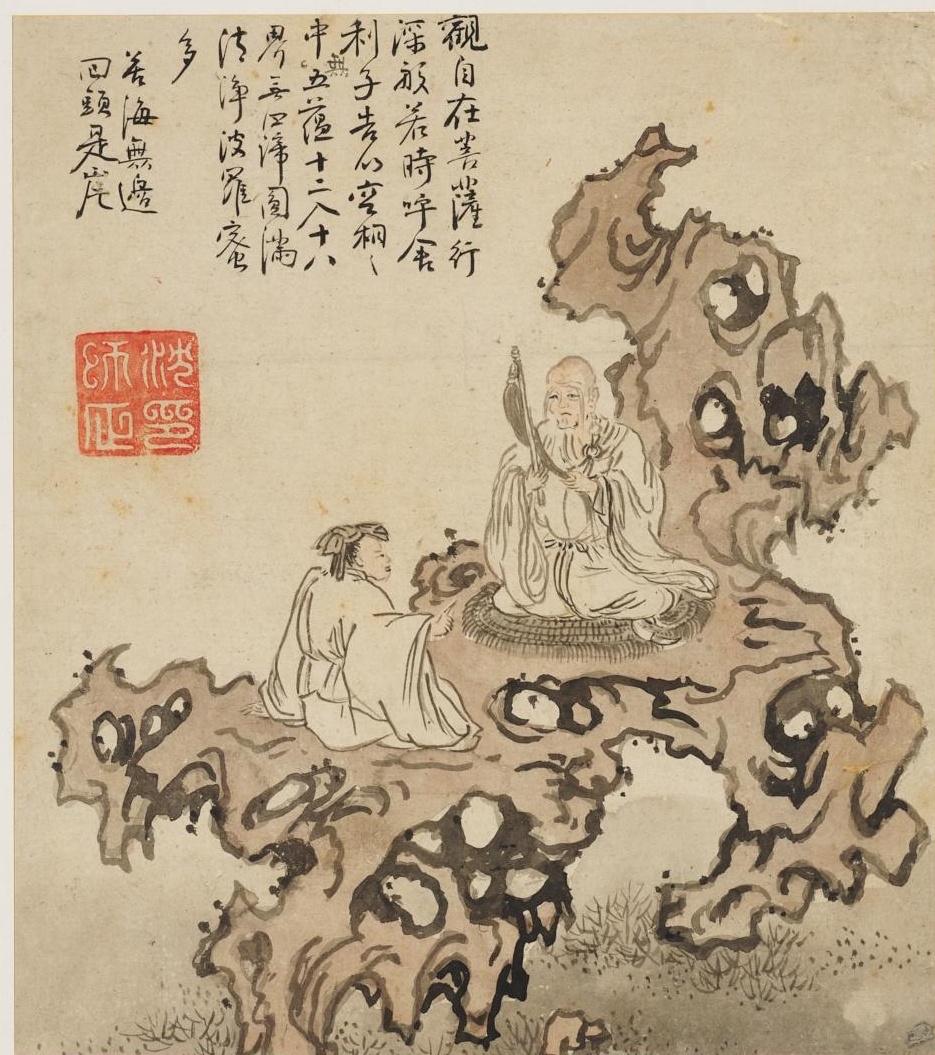 觀自在菩薩行
深般若時呼舍
利子告以空相〻
中無五蘊十二入十八
界無四諦圓滿
清淨波羅蜜
多
苦海無邊
回頭是岸
沈印
師正